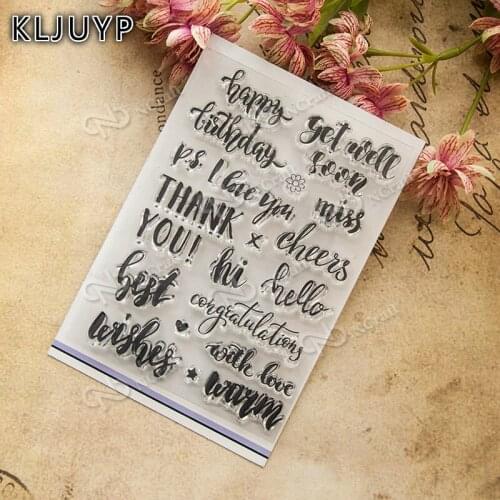 KLJUYP
happy
birthday
get well
soon
p.s. I love you
miss
THANK
YOU!
x
cheers
hi
hello
best
wishes
congratulations
with love
warm